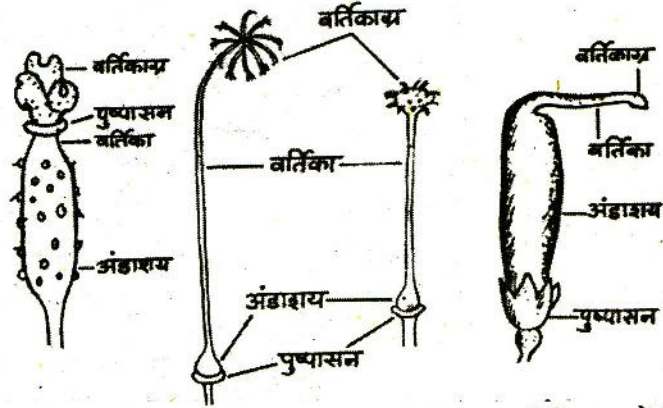 वर्तिकाग्र
पुष्पासन
वर्तिका
अंडाशय
वर्तिकाग्र
वर्तिका
अंडाशय
पुष्पासन
वर्तिकाग्र
वर्तिका
अंडाशय
पुष्पासन